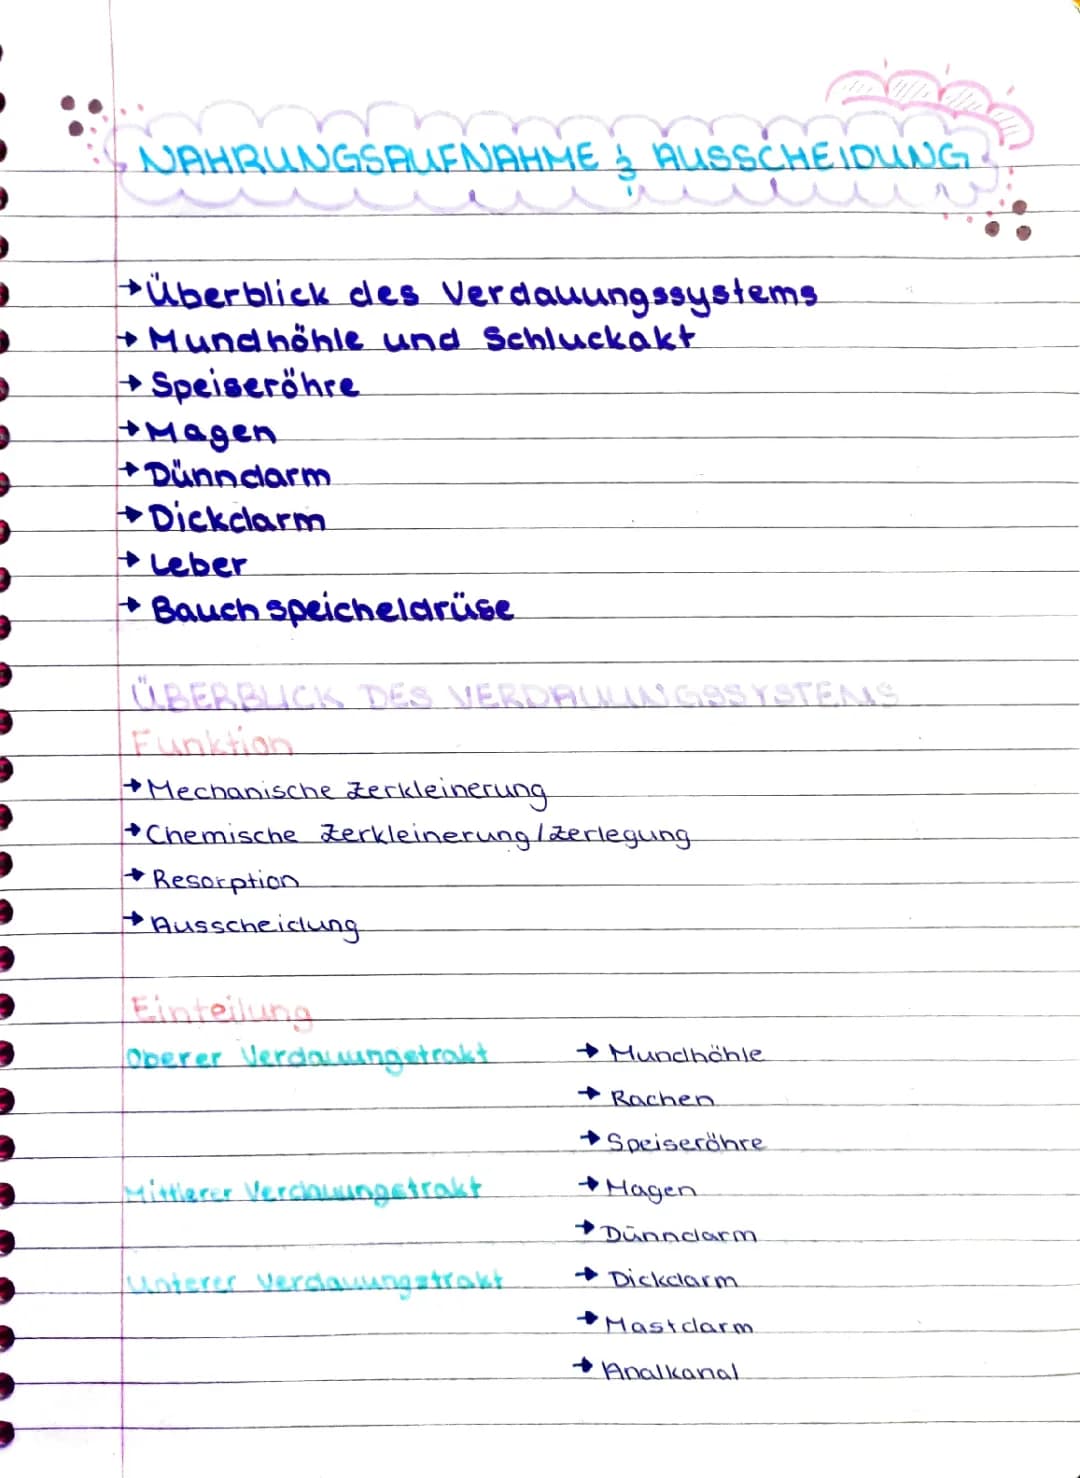 NAHRUNGSAUFNAHME & AUSSCHEIDUNG
→Überblick des Verdauungssystems
→Mundhöhle und Schluckakt
→Speiseröhre
→Magen
→Dünndarm
→Dickdarm
→Leber
→Bauchspeicheldrüse
ÜBERBLICK DES VERDAUUNGSSYSTEMS
Funktion
→Mechanische Zerkleinerung
→Chemische Zerkleinerung/Zerlegung
→Resorption
→Ausscheidung
Einteilung
Oberer Verdauungstrakt →Mundhöhle
→Rachen
→Speiseröhre
Mittlerer Verdauungstrakt →Magen
→Dünndarm
Unterer Verdauungstrakt →Dickdarm
→Mastdarm
→Analkanal